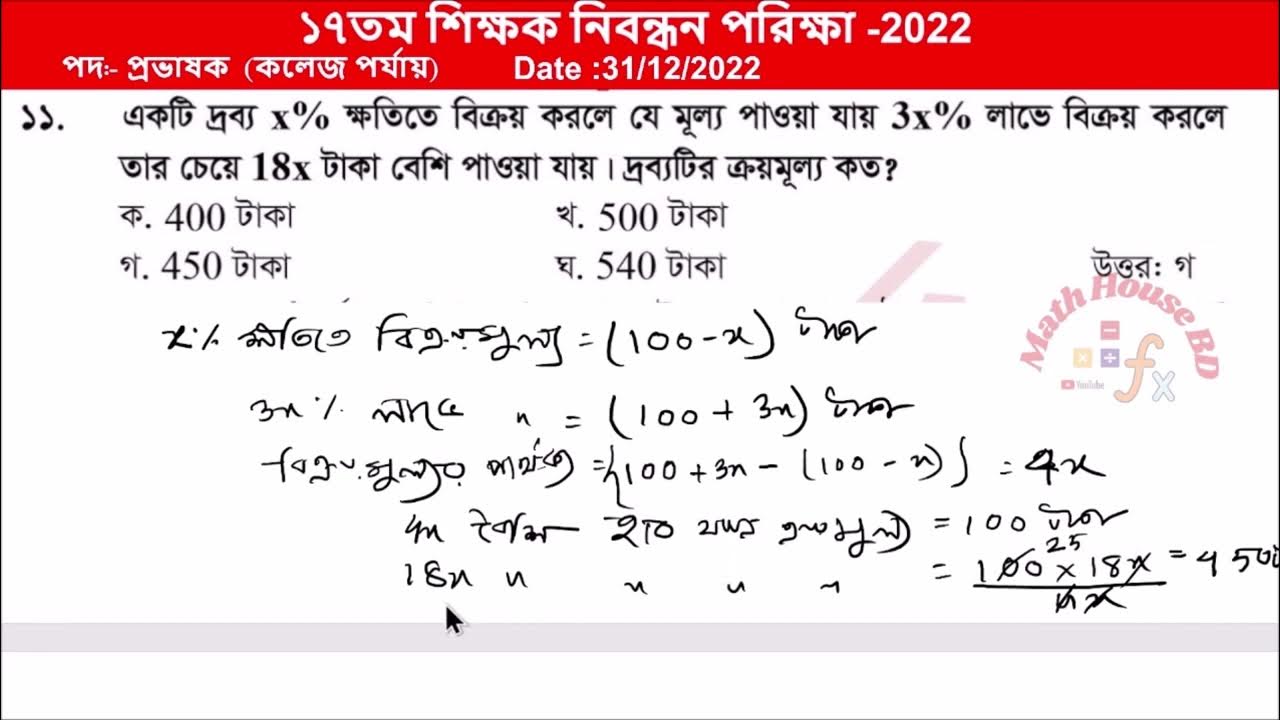 ১৭তম শিক্ষক নিবন্ধন পরিক্ষা -2022
পদঃ- প্রভাষক (কলেজ পর্যায়) Date :31/12/2022
১১. একটি দ্রব্য x% ক্ষতিতে বিক্রয় করলে যে মূল্য পাওয়া যায় 3x% লাভে বিক্রয় করলে
তার চেয়ে 18x টাকা বেশি পাওয়া যায়। দ্রব্যটির ক্রয়মূল্য কত?
ক. 400 টাকা খ. 500 টাকা
গ. 450 টাকা ঘ. 540 টাকা উত্তর: গ
Math House BD
YouTube
fx
x% ক্ষতিতে বিক্রয়মূল্য = (100 - x) টাকা
3x% লাভে " = (100 + 3x) টাকা
বিক্রয়মূল্যের পার্থক্য = {100 + 3x - (100 - x)} = 4x
4x বেশি হলে ক্রয়মূল্য = 100 টাকা
25
18x " " " " = 100 x 18x = 450
4x